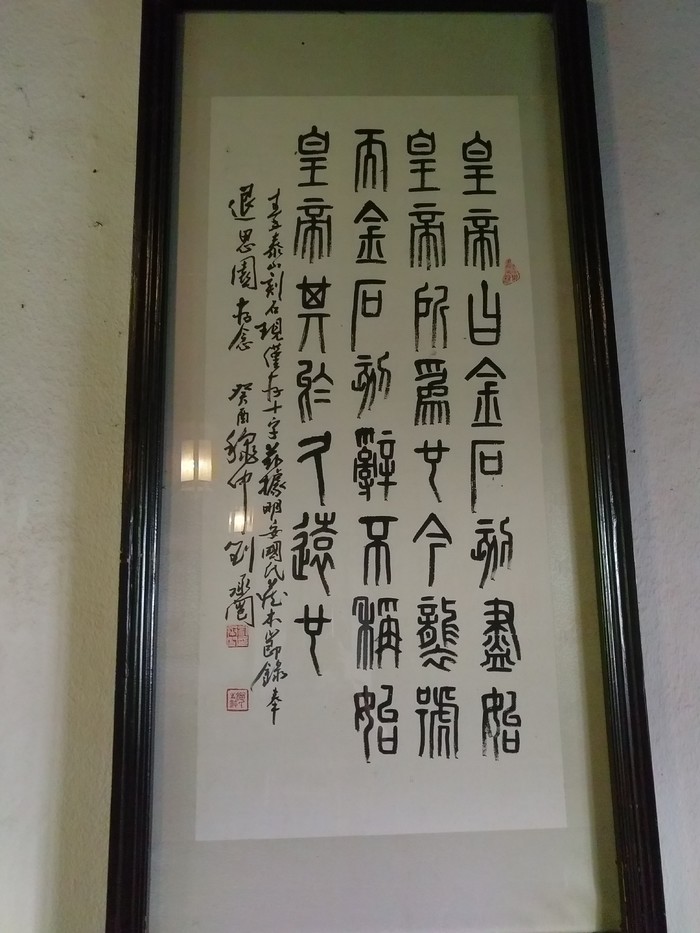 皇帝曰金石刻盡始
皇帝所爲也今襲號
而金石刻辭不稱始
皇帝其於久遠也
秦泰山刻石現僅存十字茲據明安國氏藏本節錄奉
退思園存念 癸酉穐仲 劉